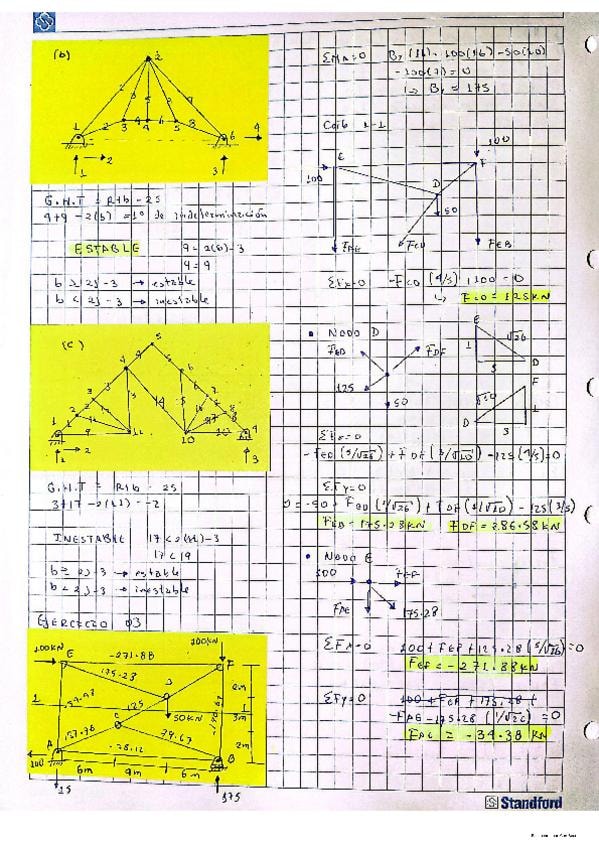 (b)
G.H.T = R+b - 2S
4+9 - 2(6) = 1° de indeterminación
ESTABLE
9 = 2(6) - 3
9 = 9
b ≥ 2J - 3 → estable
b < 2J - 3 → inestable
(c)
G.H.T = R+b - 2S
3+17 - 2(11) = -2
INESTABLE 17 < 2(11) - 3
17 < 19
b ≥ 2J - 3 → estable
b < 2J - 3 → inestable
EJERCICIO 03
100KN
E -271.88 F
100KN
175.28
D
125
50KN
C
137.78
79.67
78.12
A
B
100
2m
3m
2m
6m 9m 6m
25
175
ΣMA=0
- 100(7) = 0
↳ By = 175
Corte 1-1
100
E
F
100
D
50
FAE
FCD
FFB
ΣFx=0 -FCD (4/5) + 100 = 0
↳ FCD = 125KN
• NODO D
FED
FDF
125
50
E
√26
1
5
D
F
√10
D
1
3
ΣFx=0
-FED (5/√26) + FDF (3/√10) - 125(4/5) = 0
ΣFy=0
0 = -50 + FED (1/√26) + FDF (1/√10) - 125(3/5)
FED = 175.28KN FDF = 286.58KN
• NODO E
100
FEF
FAE
175.28
ΣFx=0 100 + FEF + 175.28 (5/√26) = 0
FEF = -271.88KN
ΣFy=0 100 + FEF + 175.28 +
-FAE - 175.28 (1/√26) = 0
FAE = -34.38 KN
Standford